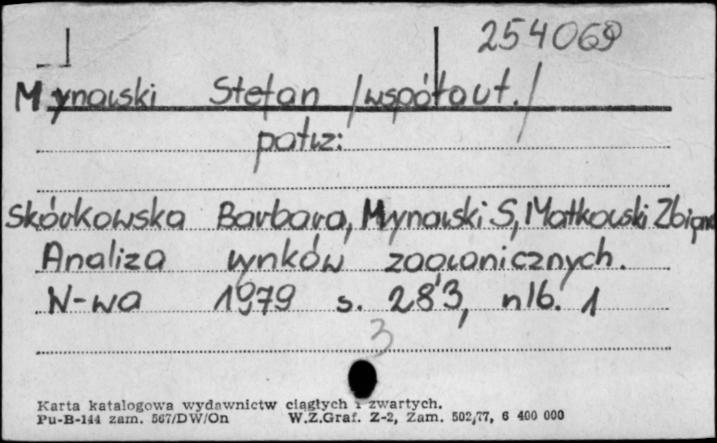 254069
Mynarski Stefan /współaut./
patrz:
Skórkowska Barbara, Mynarski S, Matkowski Zbigniew
Analiza rynków zagranicznych.
W-wa 1979 s. 283, nlb. 1
3
Karta katalogowa wydawnictw ciągłych i zwartych.
Pu-B-144 zam. 567/DW/On W.Z.Graf. Z-2, Zam. 502/77, 6 400 000